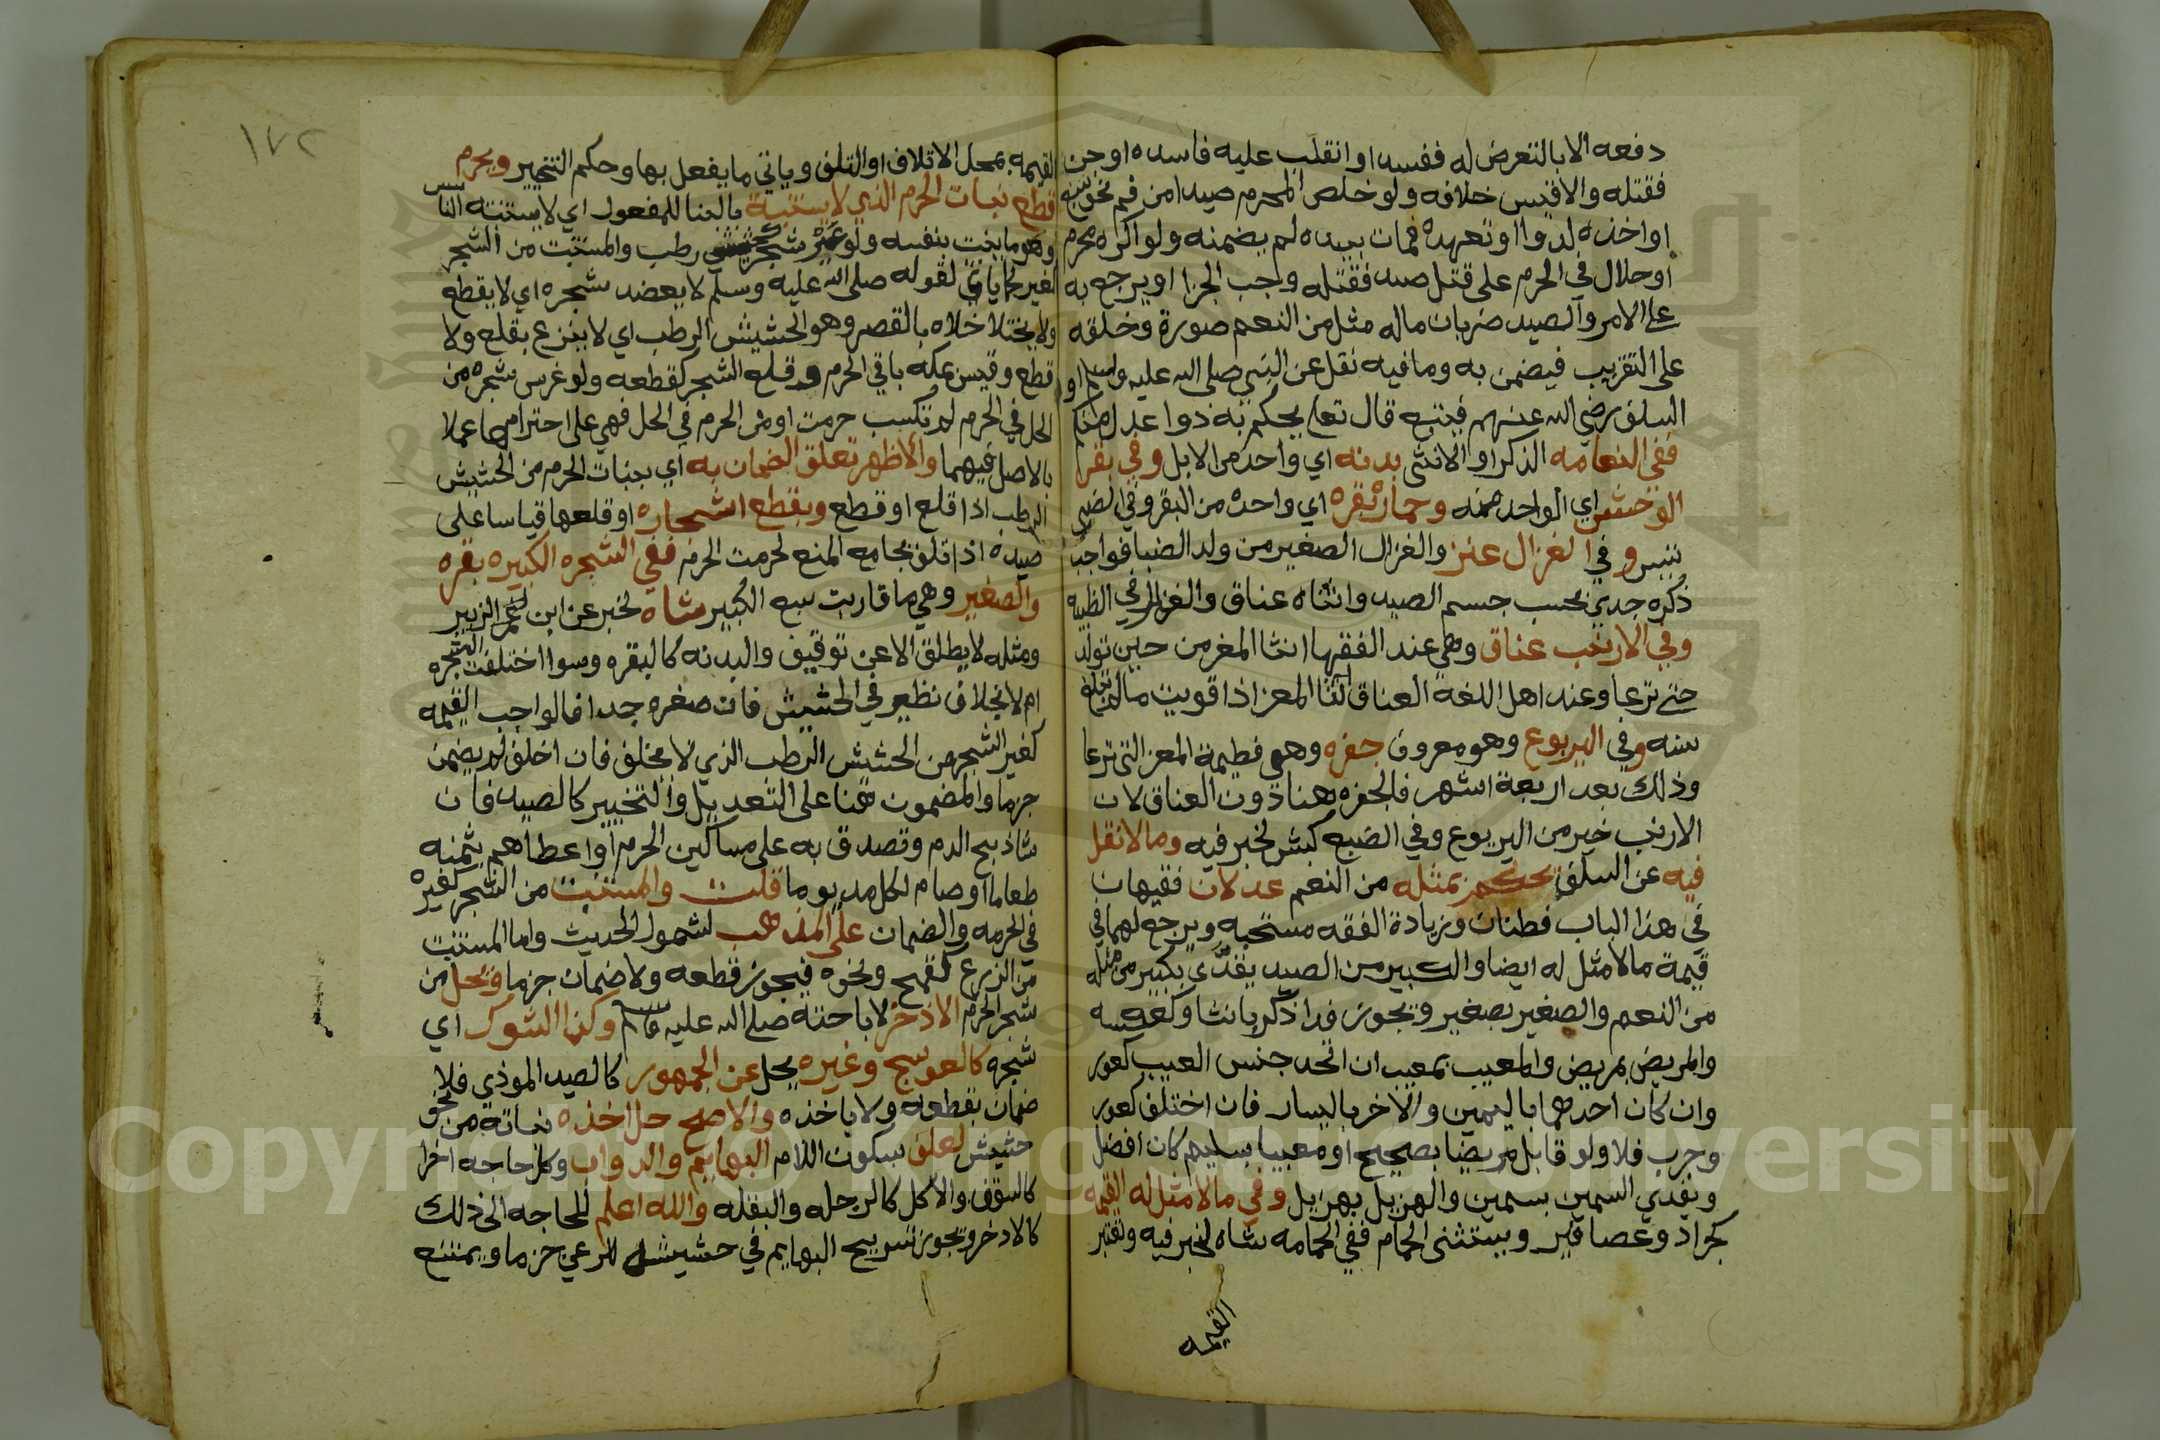 دفعه الا بالتعرض له ففسد او انقلب عليه فاسده او جن
فقتله والاقيس خلافه ولو خلص المحرم صيدا من فم نحو سبع
او اخذه لدوا او تعهده فمات بيده لم يضمنه ولو اكره محرم
او حلال في الحرم على قتل صيد فقتله وجب الجزا او يرجع به
على الامر والصيد ضربان ماله مثل من النعم صورة وخلقه
على التقريب فيضمن به وما فيه نقل عن النبي صلى الله عليه وسلم او
السلف رضي الله عنهم فيتبع قال تعا يحكم به ذوا عدل منكم
ففي النعامه الذكر او الانثى بدنه اي واحد من الابل وفي بقر
الوحش اي الواحد منه وحماره بقره اي واحده من البقر وفي الضبي
تيس وفي الغزال عنز والغزال الصغير من ولد الضبا فواجب
ذكره جدي بحسب جسم الصيد وانثاه عناق والغزال في الظبيه
وفي الارنب عناق وهي عند الفقها انثا المعز من حين تولد
حتى ترعا وعند اهل اللغة العناق انثا المعز اذا قويت مالم تبلغ
سنه وفي اليربوع وهو معروف جفره وهي فطيمة المعز التي ترعا
وذلك بعد اربعة اشهر فالجفره هنا دون العناق لان
الارنب خير من اليربوع وفي الضبع كبش لخبر فيه وما لا نقل
فيه عن السلف يحكم بمثله من النعم عدلان فقيهان
في هذا الباب فطنان وزيادة الفقه مستحبه ويرجع لهما في
قيمة مالا مثل له ايضا والكبير من الصيد يفدى بكبير من مثله
من النعم والصغير بصغير ويجوز فدا ذكر بانثا وكعكسه
والمريض بمريض والمعيب بمعيب ان اتحد جنس العيب كعور
وان كان احدهما باليمين والاخر باليسار فان اختلف كعور
وجرب فلا ولو قابل مريضا بصحيح او معيبا بسليم كان افضل
ويفدي السمين بسمين والهزيل بهزيل وفي مالا مثل له القيمه
كجراد وعصافير ويستثنى الحمام ففي الحمامه شاه لخبر فيه وتعتبر
القيمه
١٧٢
القيمه بمحل الاتلاف او التلف وياتي ما يفعل بها وحكم التخيير ويحرم
قطع نبات الحرم الذي لا يستنبت بالبنا للمفعول اي لا يستنبته الناس
وهو ما ينبت بنفسه ولو غير شجر رطب والمستنبت من الشجر
كغير كما ياتي لقوله صلى الله عليه وسلم لا يعضد شجره اي لا يقطع
ولا يختلا خلاه بالقصر وهو الحشيش الرطب اي لا ينزع بقلع ولا
قطع وقيس بمكه باقي الحرم وقلع الشجر كقطعه ولو غرس شجره من
الحل في الحرم لم تكسب حرمت او من الحرم في الحل فهي على احترامها عملا
بالاصل فيهما والاظهر تعلق الضمان به اي بنبات الحرم من الحشيش
الرطب اذا قلع او قطع وبقطع اشجاره او قلعها قياسا على
صيده اذا تلف بجامع المنع لحرمت الحرم ففي الشجره الكبيره بقره
والصغير وهي ما قاربت سبع الكبير شاه لخبر عن ابن الزبير
ومثله لا يطلق الا عن توقيف والبدنه كالبقره وسوا اختلفت الشجره
ام لا بخلاف نظيره في الحشيش فان صغره جدا فالواجب القيمه
كغير الشجر من الحشيش الرطب الذي لا يخلف فان اخلف لم يضمن
جزما والمضمون هنا على التعديل والتخيير كالصيد فان
شا ذبح الدم وتصدق به على مساكين الحرم او اعطاهم بثمنه
طعاما او صام لكل مد يوما قلت والمستنبت من الشجر كغيره
في الحرمه والضمان على المذهب لشمول الحديث واما المستنبت
من الزرع كقمح ونحوه فيجوز قطعه ولا ضمان جزما ويحل من
شجر الحرم الاذخر لاباحته صلى الله عليه وسلم وكذا الشوك اي
شجره كالعوسج وغيره يحل عن الجمهور كالصيد الموذي فلا
ضمان بقطعه ولا ياخذه والاصح حل اخذه نباته من نحو
حشيش لعلف بسكون اللام البهايم والدواب وكل حاجه اخرا
كالسقف والاكل كالرجله والبقله والله اعلم للحاجه الى ذلك
كالاذخر ويجوز تسريح البهايم في حشيشه للرعي جزما ويمتنع